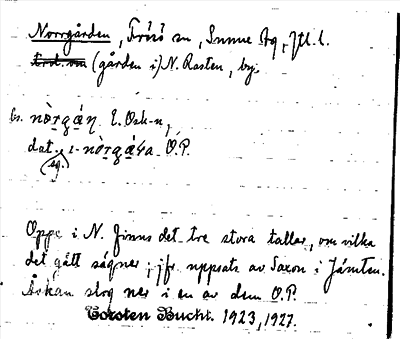 Norrgården, Frösö sn, Sunne tg, Jtl. l.
(gården i) N. Rasten, by.
bs. nòrgáṇ E. Osk-n,
dat. i-nòrgáṛa O.P.
sg.
Oppe i N. finns det tre stora tallar, om vilka
det gått sägner; jfr uppsats av Saxon i Jämten.
Åskan slog ner i en av dem O.P.
Torsten Bucht. 1923, 1927.